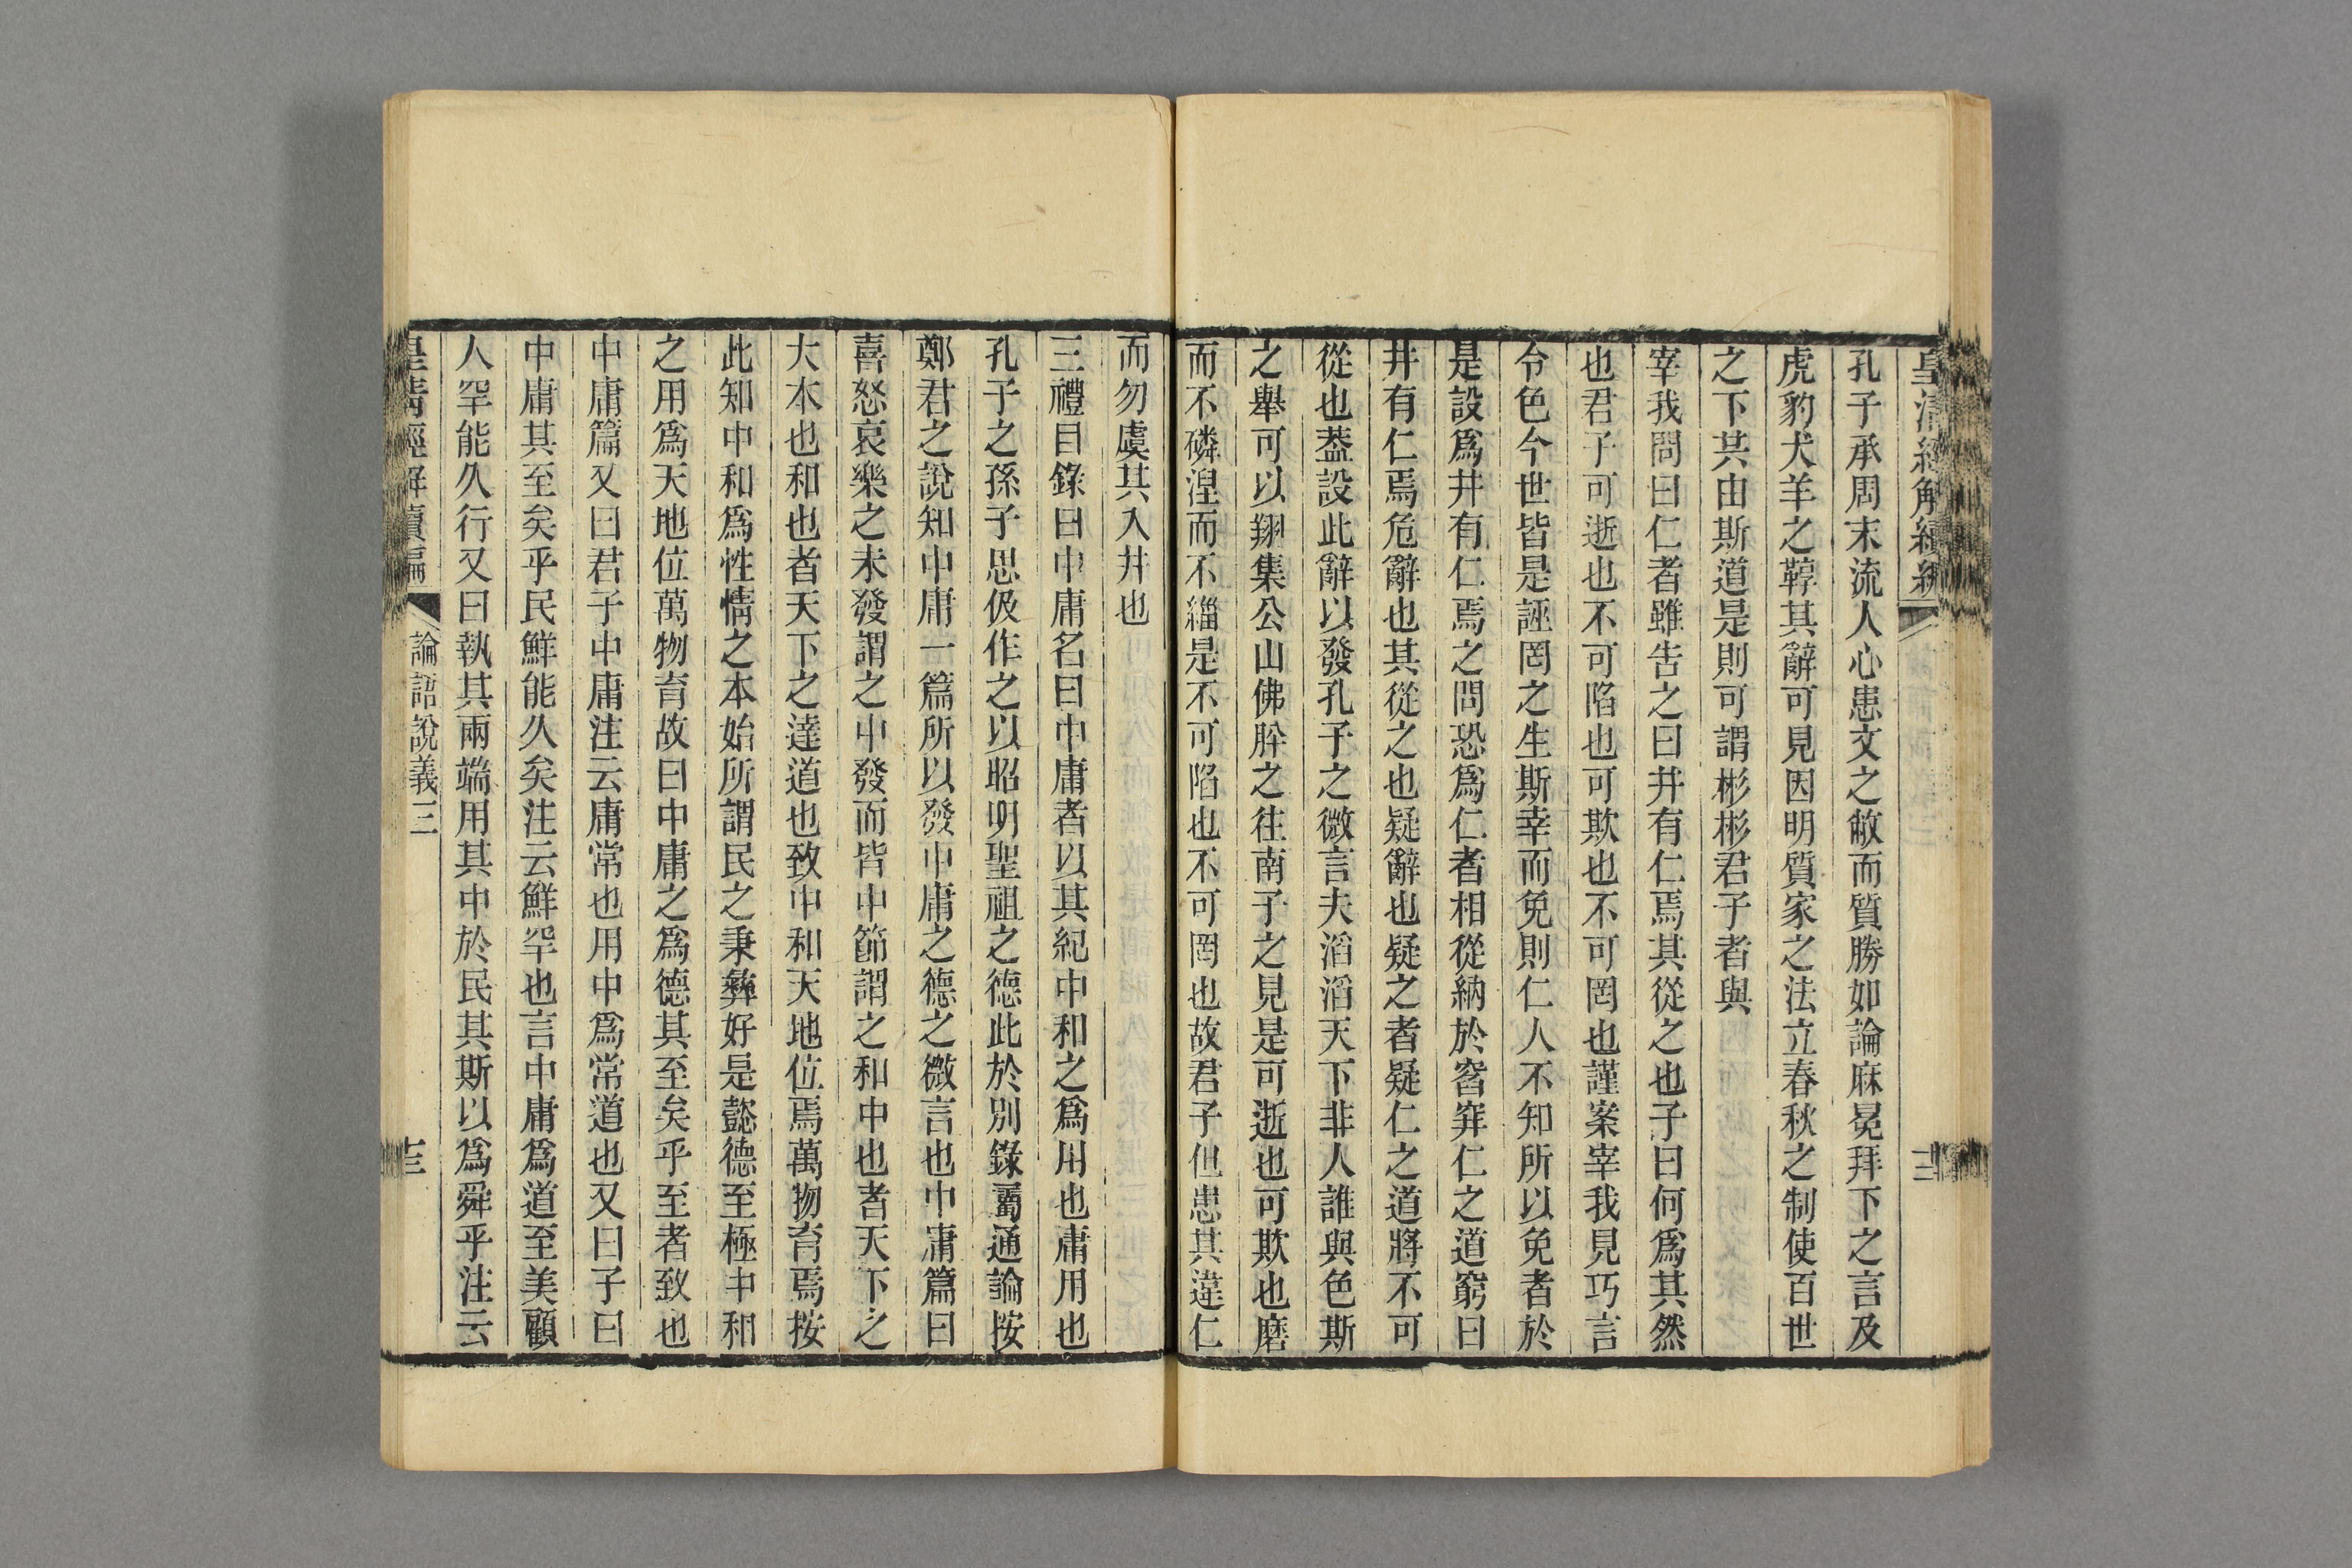 皇清經解續編
十二
孔子承周末流人心患文之敝而質勝如論麻冕拜下之言及
虎豹犬羊之鞟其辭可見因明質家之法立春秋之制使百世
之下其由斯道是則可謂彬彬君子者與
宰我問曰仁者雖告之曰井有仁焉其從之也子曰何爲其然
也君子可逝也不可陷也可欺也不可罔也謹案宰我見巧言
令色今世皆是誣罔之生斯幸而免則仁人不知所以免者於
是設爲井有仁焉之問恐爲仁者相從納於窞穽仁之道窮曰
井有仁焉危辭也其從之也疑辭也疑之者疑仁之道將不可
從也葢設此辭以發孔子之微言夫滔滔天下非人誰與色斯
之舉可以翔集公山佛肸之往南子之見是可逝也可欺也磨
而不磷涅而不緇是不可陷也不可罔也故君子但患其違仁
而勿虞其入井也
三禮目錄曰中庸名曰中庸者以其紀中和之爲用也庸用也
孔子之孫子思伋作之以昭明聖祖之德此於別錄屬通論按
鄭君之說知中庸一篇所以發中庸之德之微言也中庸篇曰
喜怒哀樂之未發謂之中發而皆中節謂之和中也者天下之
大本也和也者天下之達道也致中和天地位焉萬物育焉按
此知中和爲性情之本始所謂民之秉彝好是懿德至極中和
之用爲天地位萬物育故曰中庸之爲德其至矣乎至者致也
中庸篇又曰君子中庸注云庸常也用中爲常道也又曰子曰
中庸其至矣乎民鮮能久矣注云鮮罕也言中庸爲道至美顧
人罕能久行又曰執其兩端用其中於民其斯以爲舜乎注云
皇清經解續編
論語說義三
十三